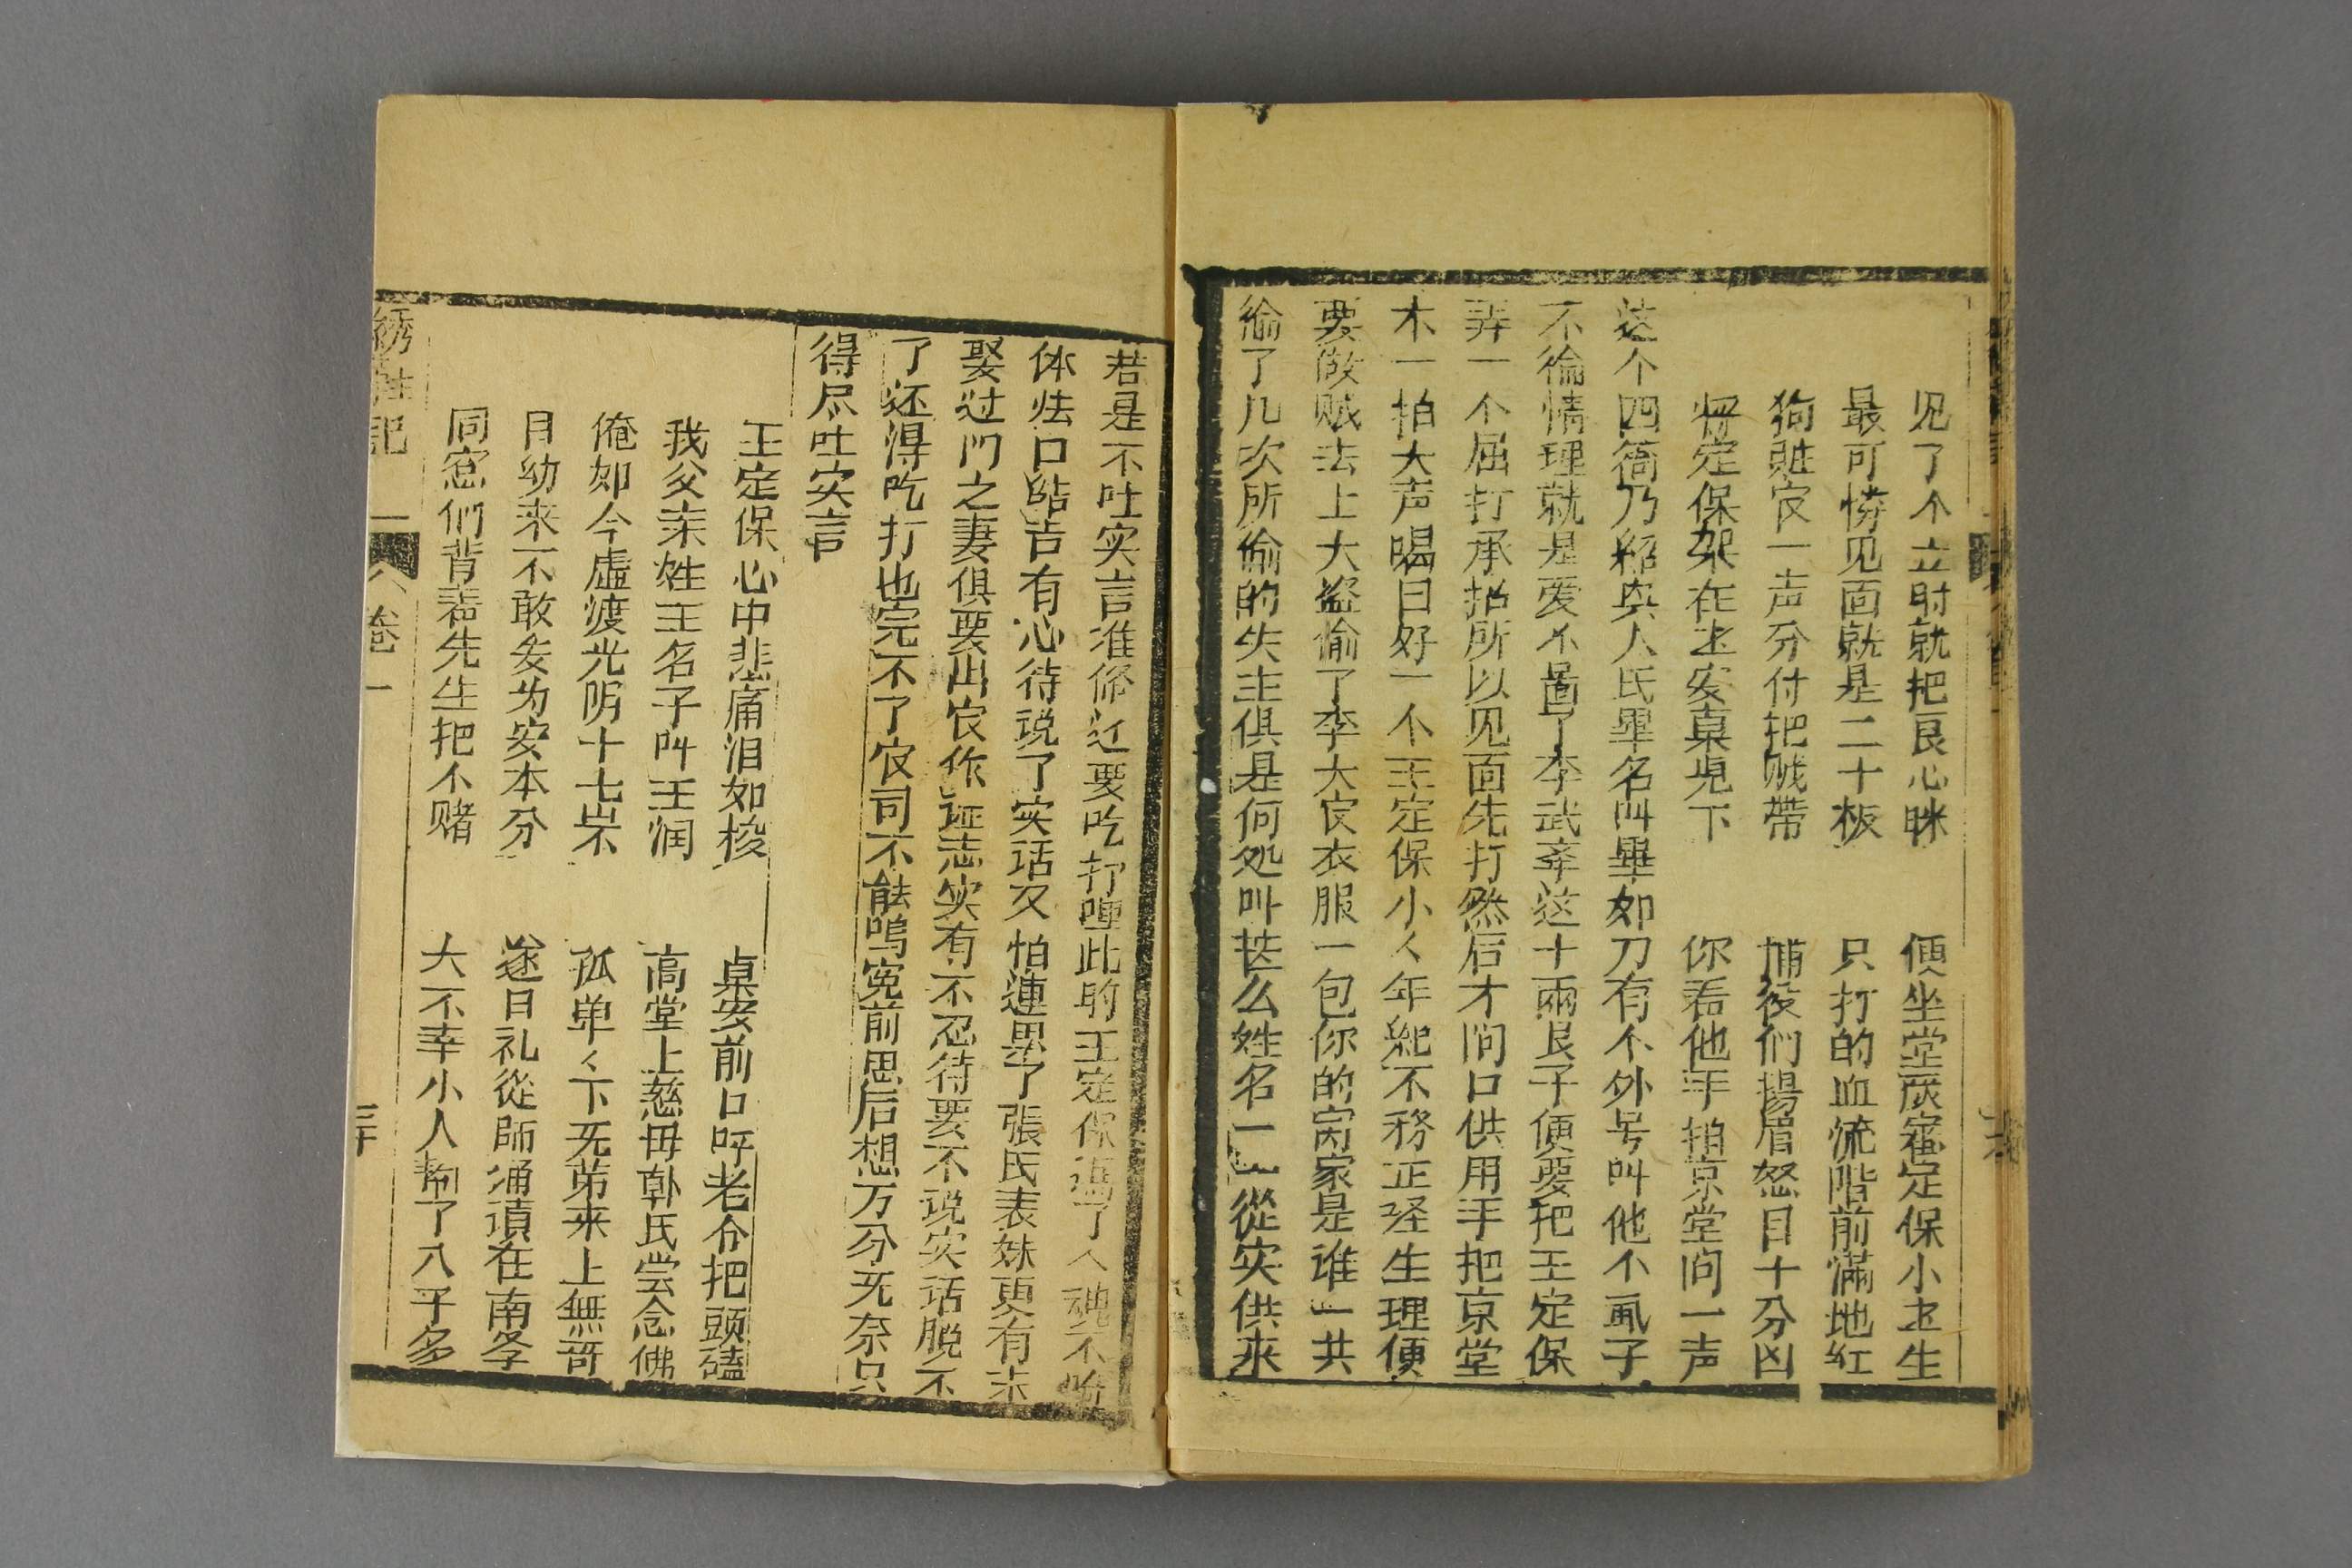 见了个立时就把良心昧
便坐堂灰審定保小王生
最可憐见面就是二十板
只打的血流階前滿地红
狗賍官一声分付把贼帶
捕役们揚眉怒目十分凶
将定保架在王安桌児下
你看他手拍京堂问一声
这个四衙乃紹興人氏畢名叫畢如刀有个外号叫他个虱子
不徇情理就是爱个圖了李武舉这十兩艮子便要把王定保
弄一个屈打承招所以见面先打然后才问口供用手把京堂
木一拍大声喝曰好一个王定保小〻年紀不務正经生理便
要做贼去上大盗偷了李大官衣服一包你的窝家是谁一共
偷了几次所偷的失主俱是何处叫甚么姓名一一從实供来
若是不吐实言准偹还要吃打哩此时王定保嚇了个魂不附
体怯口皓告有心待说了实话又怕連累了張氏表妹更有未
娶过门之妻俱要出官作证志实有不忍待要不说实话脱不
了还淂吃打也完不了官司不能鳴冤前思后想万分无奈只
得尽吐实言
王定保心中悲痛泪如梭
桌案前口呼老爷把頭磕
我父亲姓王名子叫王润
高堂上慈母郭氏尝念佛
俺如今虚渡光阴十七岁
孤单〻下无弟来上無哥
自幼来不敢妄为安本分
逐日礼從師涌讀在南学
同窓们背着先生把个赌
大不幸小人輸了八千多
绣鞋記 卷一 三十